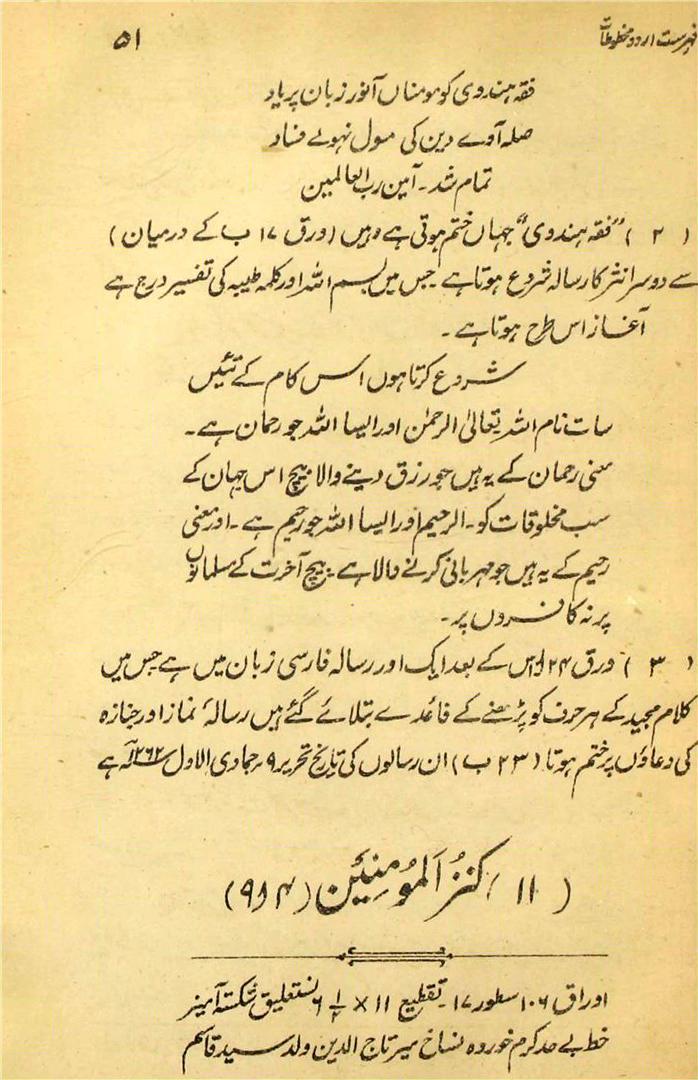 فہرست اردو مخطوطات
۵۱
فقہ ہندوی کو مومناں آنور زبان پر یاد
صلہ آوے دین کی مول نہوئے فساد
تمام شد۔ آمین رب العالمین
(۲) "فقہ ہندوی" جہاں ختم ہوتی ہے وہیں (ورق ۱۷ ب کے درمیان)
سے دوسرا نثر کا رسالہ شروع ہوتا ہے۔ جس میں بسم اللہ اور کلمہ طیبہ کی تفسیر درج ہے
آغاز اس طرح ہوتا ہے۔
شروع کرتا ہوں اس کام کے تئیں
سات نام اللہ تعالیٰ الرحمٰن اور ایسا اللہ جو رحمان ہے۔
معنی رحمان کے یہ ہیں جو رزق دینے والا بیچ اس جہان کے
سب مخلوقات کو۔ الرحیم اور ایسا اللہ جو رحیم ہے۔ اور معنی
رحیم کے یہ ہیں جو مہربانی کرنے والا ہے۔ بیچ آخرت کے مسلمانوں
پر نہ کافروں پر۔
(۳) ورق ۲۴ اس کے بعد ایک اور رسالہ فارسی زبان میں ہے جس میں
کلام مجید کے ہر حرف کو پڑھنے کے قاعدے بتلائے گئے ہیں رسالۂ نماز اور جنازہ
کی دعاؤں پر ختم ہوتا (۲۳ ب) ان رسالوں کی تاریخ تحریر ۹۔ جمادی الاول ۱۲۶۲ھ ہے
(۱۱) کنزُ المُومِنِیْن (۹۵۴)
اوراق ۱۰۶ سطور ۱۷۔ تقطیع ۱۱ × ۶ ۱/۲ نستعلیق شکستہ آمیز
خط بے حد کرم خوردہ نساخ میر تاج الدین ولد سید قاسم